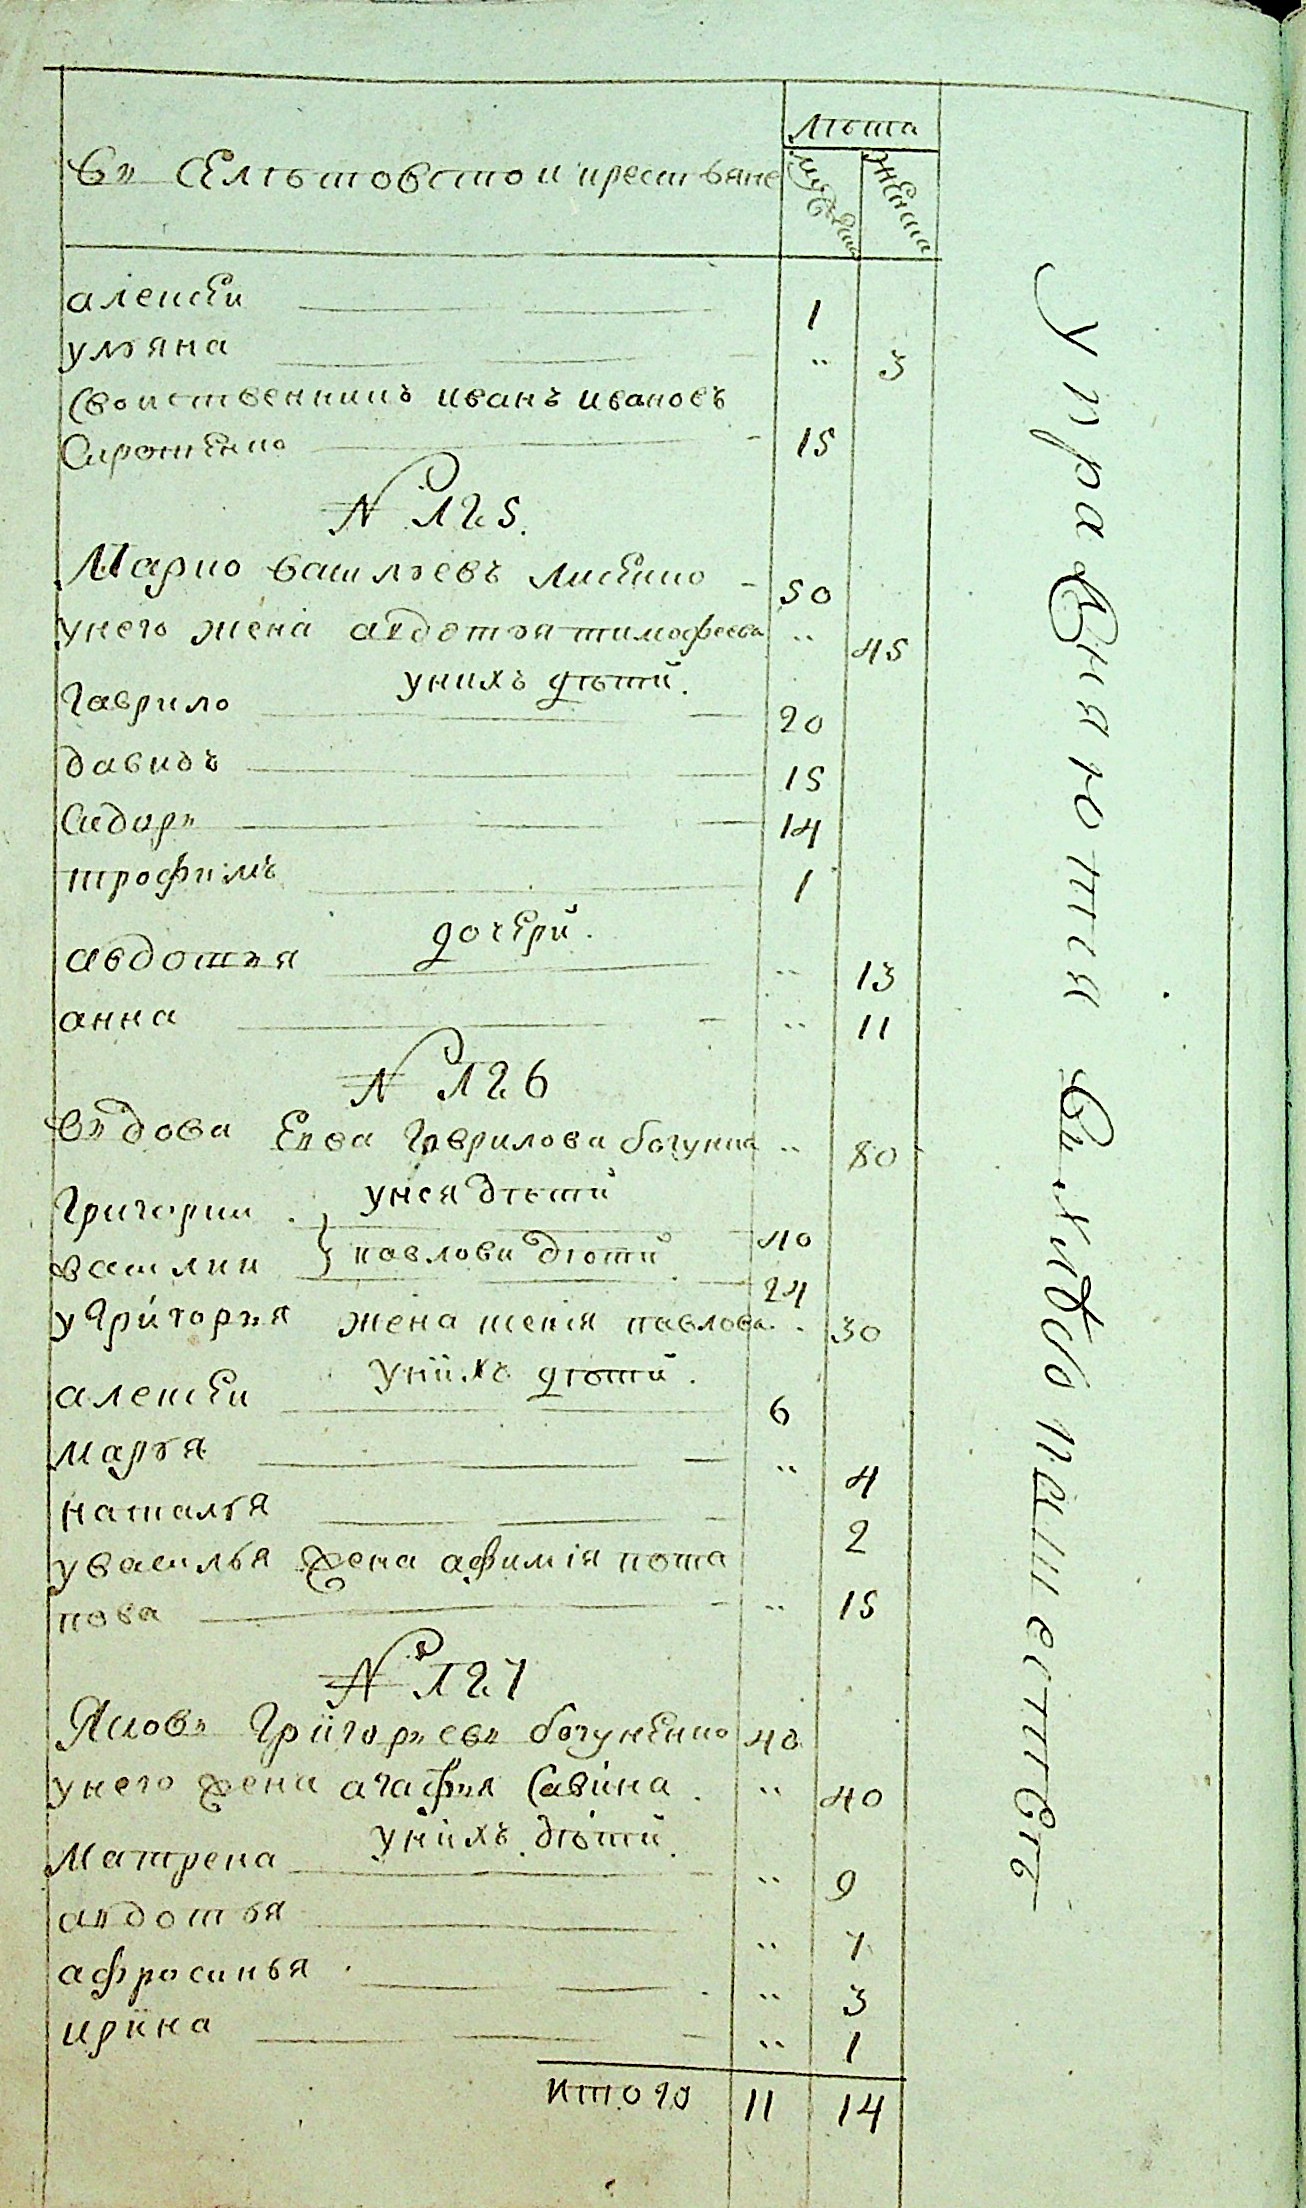 лѣта
въ Селѣ товстои крестьяне
мужска
женска
алексеи 1
ульяна " 3
Своиственникъ иванъ ивановъ
Сироженко 15
№ 125.
Марко васильевъ лисенко 50
унего жена авдотья тимофеева " 45
унихъ дѣтй.
гаврило 20
давидъ 15
Сидоръ 14
трофимъ 1
дочерй.
авдотья " 13
анна " 11
№ 126
въдова Евва гаврилова богунка " 80
унея дѣтй
григории 40
василии } павлови дѣтй 24
у григорья жена ксенія павлова 30
унихъ дѣтй.
алексеи 6
марья " 4
наталья 2
у василья жена афимія пота
пова " 15
№ 127
Яковъ григорьевъ богуненко 40
унего жена агафья Савина " 40
унихъ дѣтй
матрена " 9
авдотья " 7
афросинья " 3
ирина " 1
итого 11 14
упражняются въ хлѣбопашестве